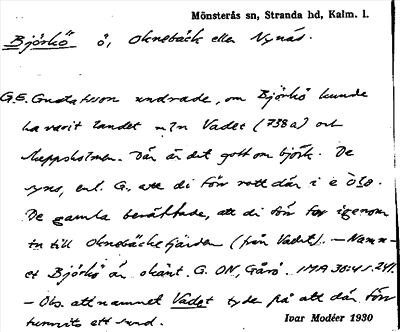 Mönsterås sn, Stranda hd, Kalm. l.
Björkö ö, Oknebäck eller Nynäs.
G.E. Gustafsson undrade, om Björkö kunde
ha varit landet mln Vadet (738a) och
skeppsholmen. Där är det gott om björk. De
syns, enl. G., att di för vatt där i e ö.
De gamla berättade, att di för for igenom
in till Oknebäcksfjärden (från Vadet). – Namn-
et Björkö är okänt. G. ON, Gårö. IMA 30:41 s. 241.
– Obs. att namnet Vadet tyder på att där förr
funnits ett sund.
Ivar Modéer 1930